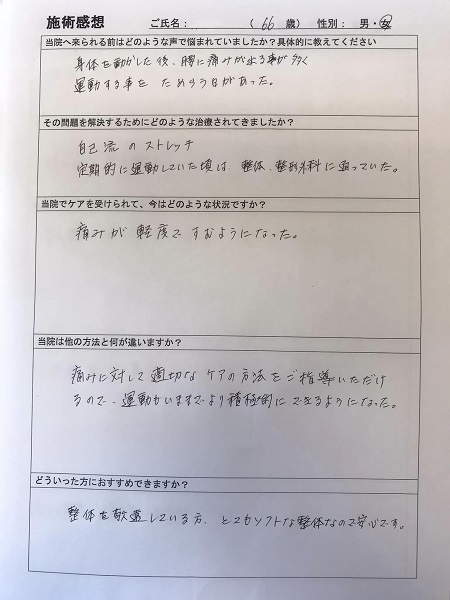 施術感想 ご氏名： （ 66 歳） 性別： 男・女
当院へ来られる前はどのような声で悩まれていましたか？具体的に教えてください
身体を動かした後、腰に痛みが出る事が多く
運動する事を ためらう日があった。
その問題を解決するためにどのような治療されてきましたか？
自己流のストレッチ
定期的に運動していた頃は、整体、整形外科に通っていた。
当院でケアを受けられて、今はどのような状況ですか？
痛みが軽度ですむようになった。
当院は他の方法と何が違いますか？
痛みに対して適切なケアの方法をご指導いただけ
るので、運動もいままでより積極的にできるようになった。
どういった方におすすめできますか？
整体を敬遠している方、とてもソフトな整体なので安心です。